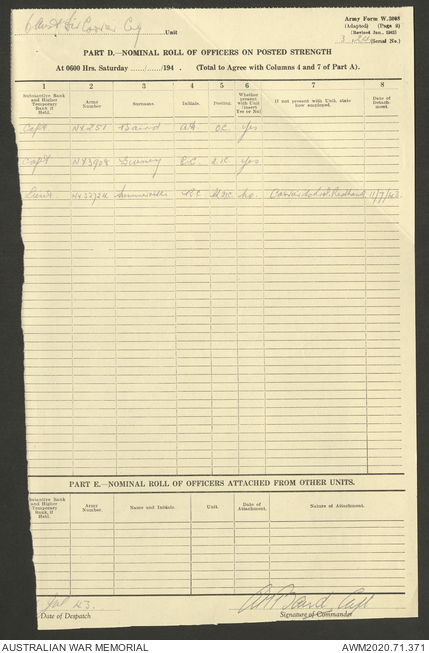 Army Form W.3008
(Adapted) (Page ii)
(Revised Jan., 1943)
Unit
(Serial No.)
PART D.—NOMINAL ROLL OF OFFICERS ON POSTED STRENGTH
At 0600 Hrs. Saturday ....../....../194 . (Total to Agree with Columns 4 and 7 of Part A).
1 2 3 4 5 6 7 8
Substantive Rank and Higher Temporary Rank if Held. Army Number. Surname. Initials. Posting. Whether present with Unit (insert Yes or No) If not present with Unit, state how employed. Date of Detachment.
Capt NX251 Baird OC yes
Capt 2 IC yes
Lieut No 11/7/43
PART E.—NOMINAL ROLL OF OFFICERS ATTACHED FROM OTHER UNITS.
Substantive Rank and Higher Temporary Rank if Held. Army Number. Name and Initials. Unit. Date of Attachment. Nature of Attachment.
Jul 43.
Baird Capt
Date of Despatch
Signature of Commander
AUSTRALIAN WAR MEMORIAL
AWM2020.71.371